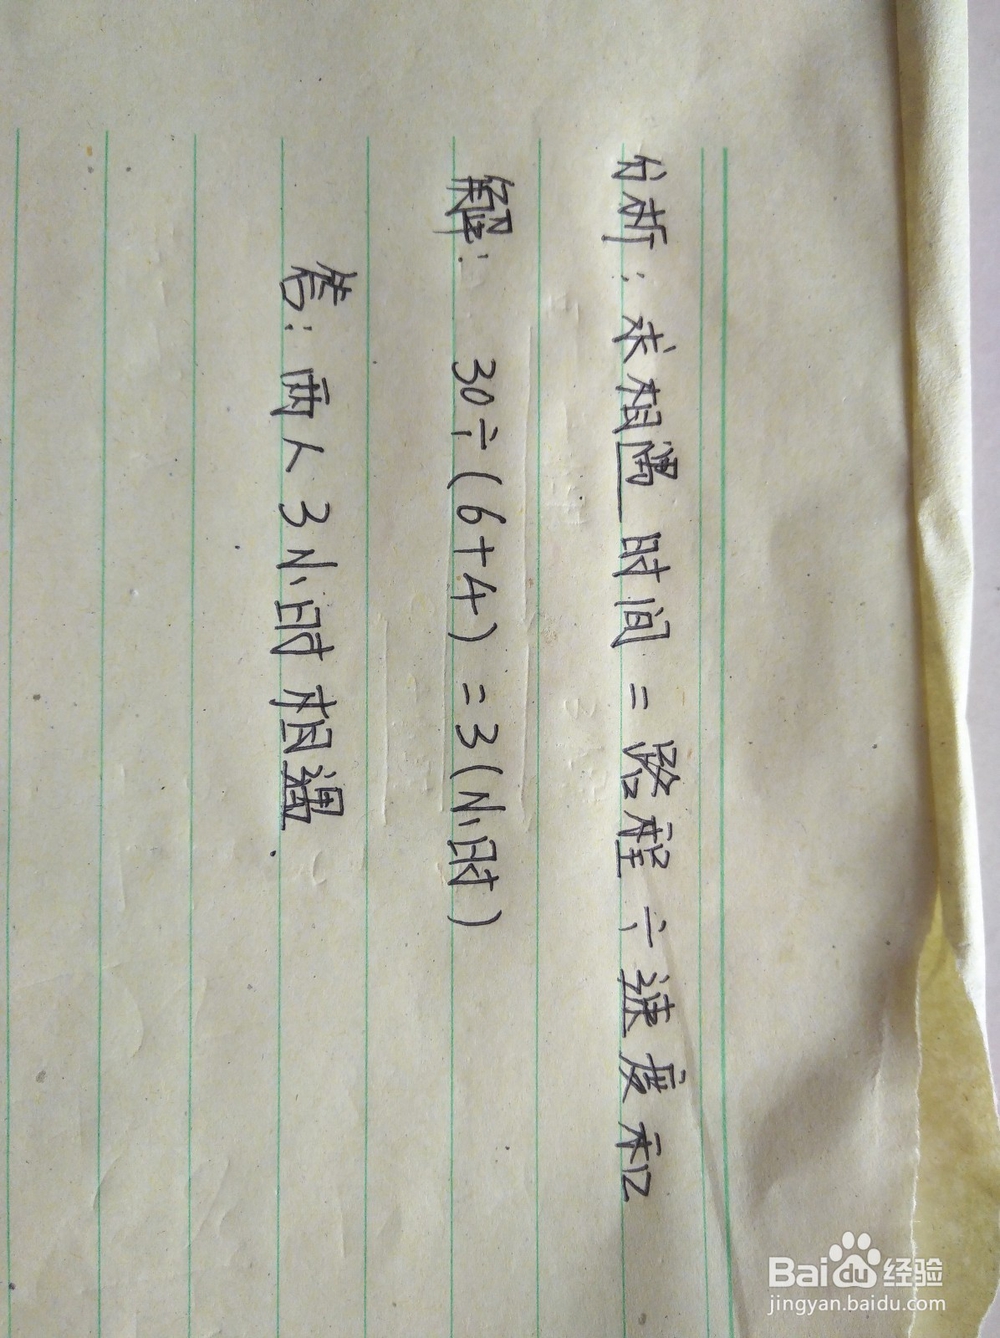 分析：求相遇时间=路程÷速度和
解：30÷(6+4)=3(小时)
答：两人3小时相遇.
Baidu经验
jingyan.baidu.com